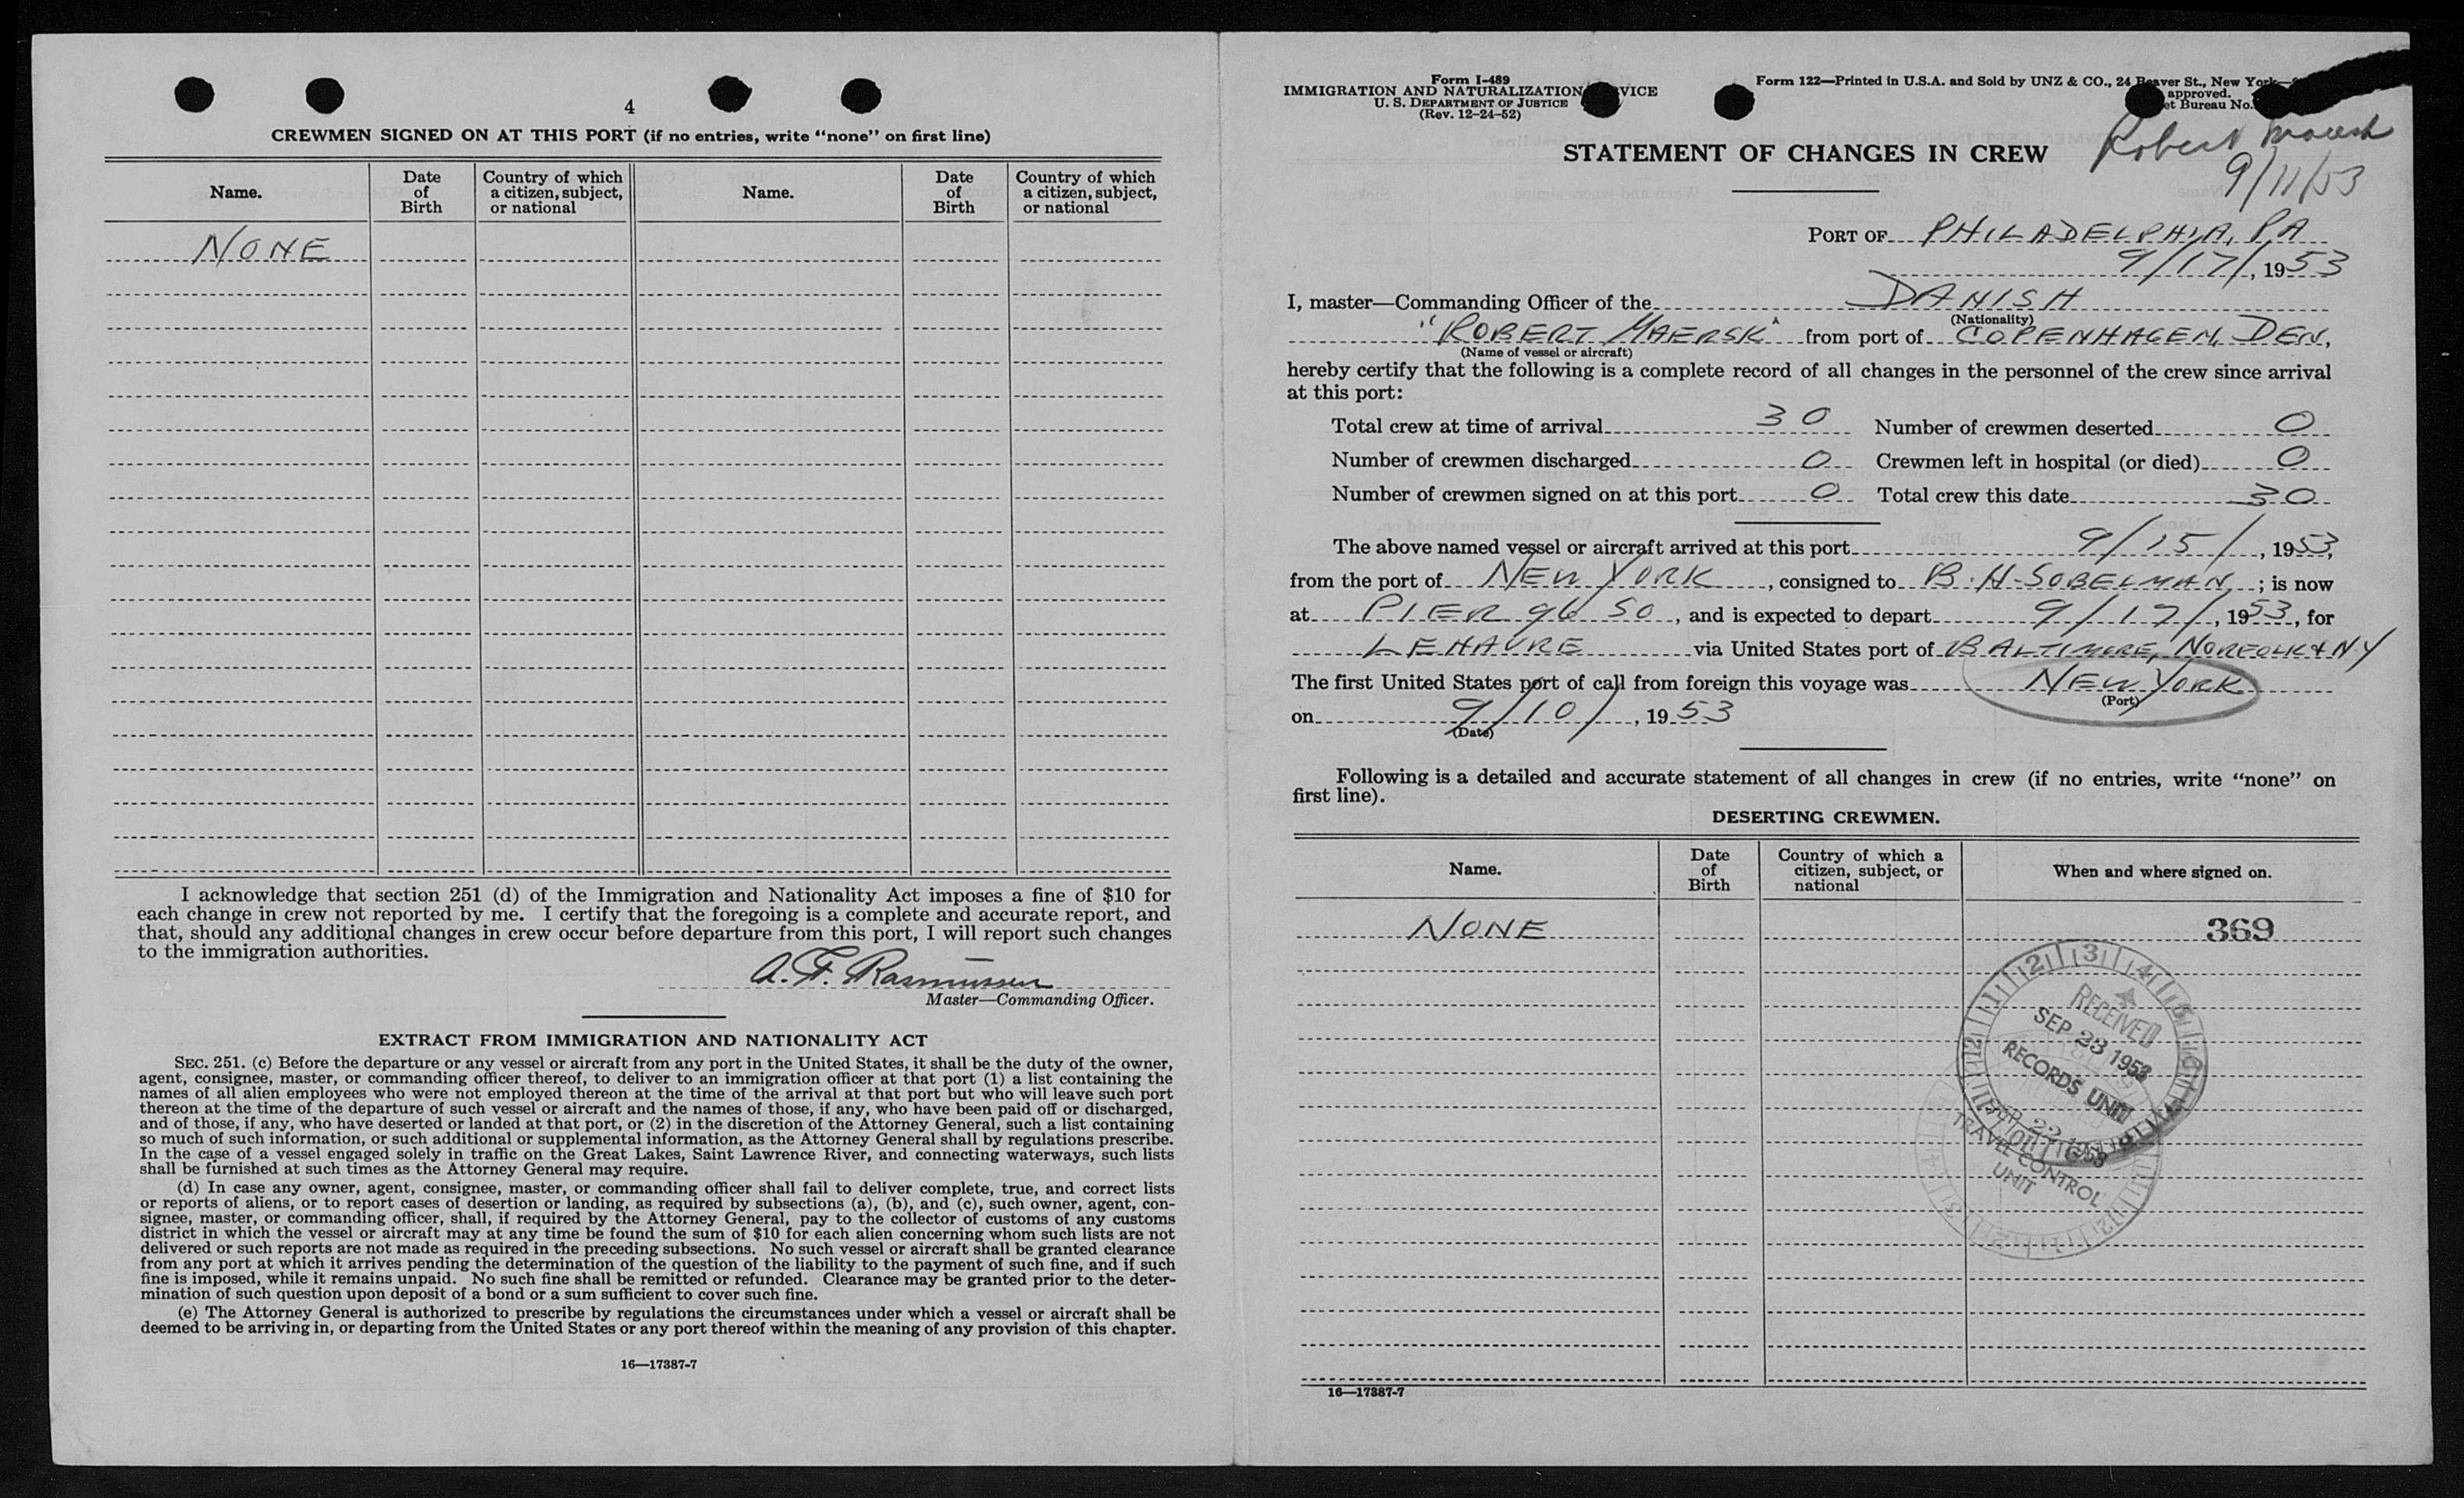 4
CREWMEN SIGNED ON AT THIS PORT (if no entries, write “none” on first line)
Name. Date of Birth Country of which a citizen, subject, or national Name. Date of Birth Country of which a citizen, subject, or national
NONE
I acknowledge that section 251 (d) of the Immigration and Nationality Act imposes a fine of $10 for
each change in crew not reported by me. I certify that the foregoing is a complete and accurate report, and
that, should any additional changes in crew occur before departure from this port, I will report such changes
to the immigration authorities.
A. F. Rasmussen
Master—Commanding Officer.
EXTRACT FROM IMMIGRATION AND NATIONALITY ACT
SEC. 251. (c) Before the departure or any vessel or aircraft from any port in the United States, it shall be the duty of the owner,
agent, consignee, master, or commanding officer thereof, to deliver to an immigration officer at that port (1) a list containing the
names of all alien employees who were not employed thereon at the time of the arrival at that port but who will leave such port
thereon at the time of the departure of such vessel or aircraft and the names of those, if any, who have been paid off or discharged,
and of those, if any, who have deserted or landed at that port, or (2) in the discretion of the Attorney General, such a list containing
so much of such information, or such additional or supplemental information, as the Attorney General shall by regulations prescribe.
In the case of a vessel engaged solely in traffic on the Great Lakes, Saint Lawrence River, and connecting waterways, such lists
shall be furnished at such times as the Attorney General may require.
(d) In case any owner, agent, consignee, master, or commanding officer shall fail to deliver complete, true, and correct lists
or reports of aliens, or to report cases of desertion or landing, as required by subsections (a), (b), and (c), such owner, agent, con-
signee, master, or commanding officer, shall, if required by the Attorney General, pay to the collector of customs of any customs
district in which the vessel or aircraft may at any time be found the sum of $10 for each alien concerning whom such lists are not
delivered or such reports are not made as required in the preceding subsections. No such vessel or aircraft shall be granted clearance
from any port at which it arrives pending the determination of the question of the liability to the payment of such fine, and if such
fine is imposed, while it remains unpaid. No such fine shall be remitted or refunded. Clearance may be granted prior to the deter-
mination of such question upon deposit of a bond or a sum sufficient to cover such fine.
(e) The Attorney General is authorized to prescribe by regulations the circumstances under which a vessel or aircraft shall be
deemed to be arriving in, or departing from the United States or any port thereof within the meaning of any provision of this chapter.
16—17387-7
Form I-489
IMMIGRATION AND NATURALIZATION VICE
U. S. DEPARTMENT OF JUSTICE
(Rev. 12-24-52)
Form 122—Printed in U.S.A. and Sold by UNZ & CO., 24 Beaver St., New York
approved.
et Bureau No.
Robert
9/11/53
STATEMENT OF CHANGES IN CREW
PORT OF PHILADELPHIA, PA
9/17/, 1953
I, master—Commanding Officer of the DANISH
(Nationality)
"ROBERT MAERSK" from port of COPENHAGEN, DEN,
(Name of vessel or aircraft)
hereby certify that the following is a complete record of all changes in the personnel of the crew since arrival
at this port:
Total crew at time of arrival 30 Number of crewmen deserted 0
Number of crewmen discharged 0 Crewmen left in hospital (or died) 0
Number of crewmen signed on at this port 0 Total crew this date 30
The above named vessel or aircraft arrived at this port 9/15/, 1953,
from the port of NEW YORK, consigned to B. H. SOBELMAN; is now
at PIER 96 SO, and is expected to depart 9/17/, 1953, for
LEHAVRE via United States port of BALTIMORE, NORFOLK & NY
The first United States port of call from foreign this voyage was NEW YORK
(Port)
on 9/10/, 1953
(Date)
Following is a detailed and accurate statement of all changes in crew (if no entries, write “none” on
first line).
DESERTING CREWMEN.
Name. Date of Birth Country of which a citizen, subject, or national When and where signed on.
NONE
369
RECEIVED
SEP 23 1953
RECORDS UNIT
22 1953
TRAVEL CONTROL
UNIT
16—17387-7